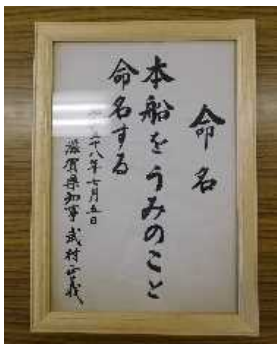 命名
本船をうみのこと
命名する
五十八年七月五日
滋賀県知事 武村正義